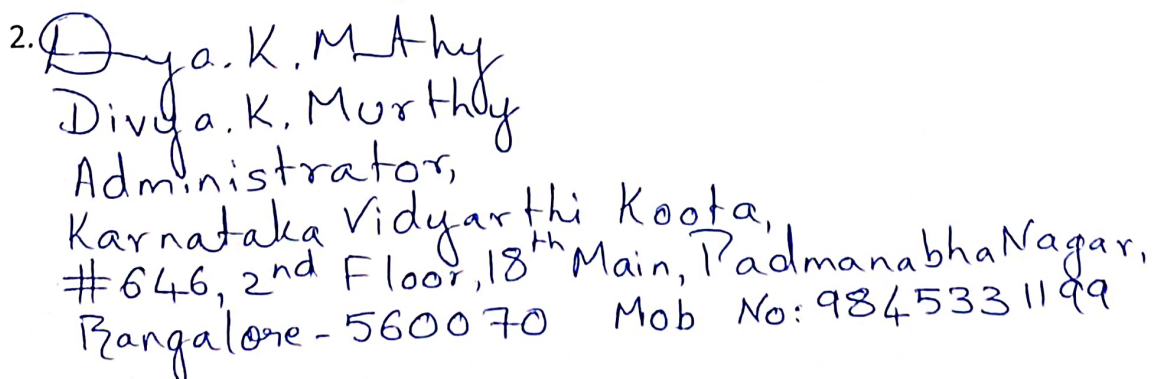 2. Dya.K.Mthy
Divya.K.Murthy
Administrator,
Karnataka Vidyarthi Koota,
#646, 2nd Floor, 18th Main, PadmanabhaNagar,
Bangalore - 560070 Mob No: 9845331199